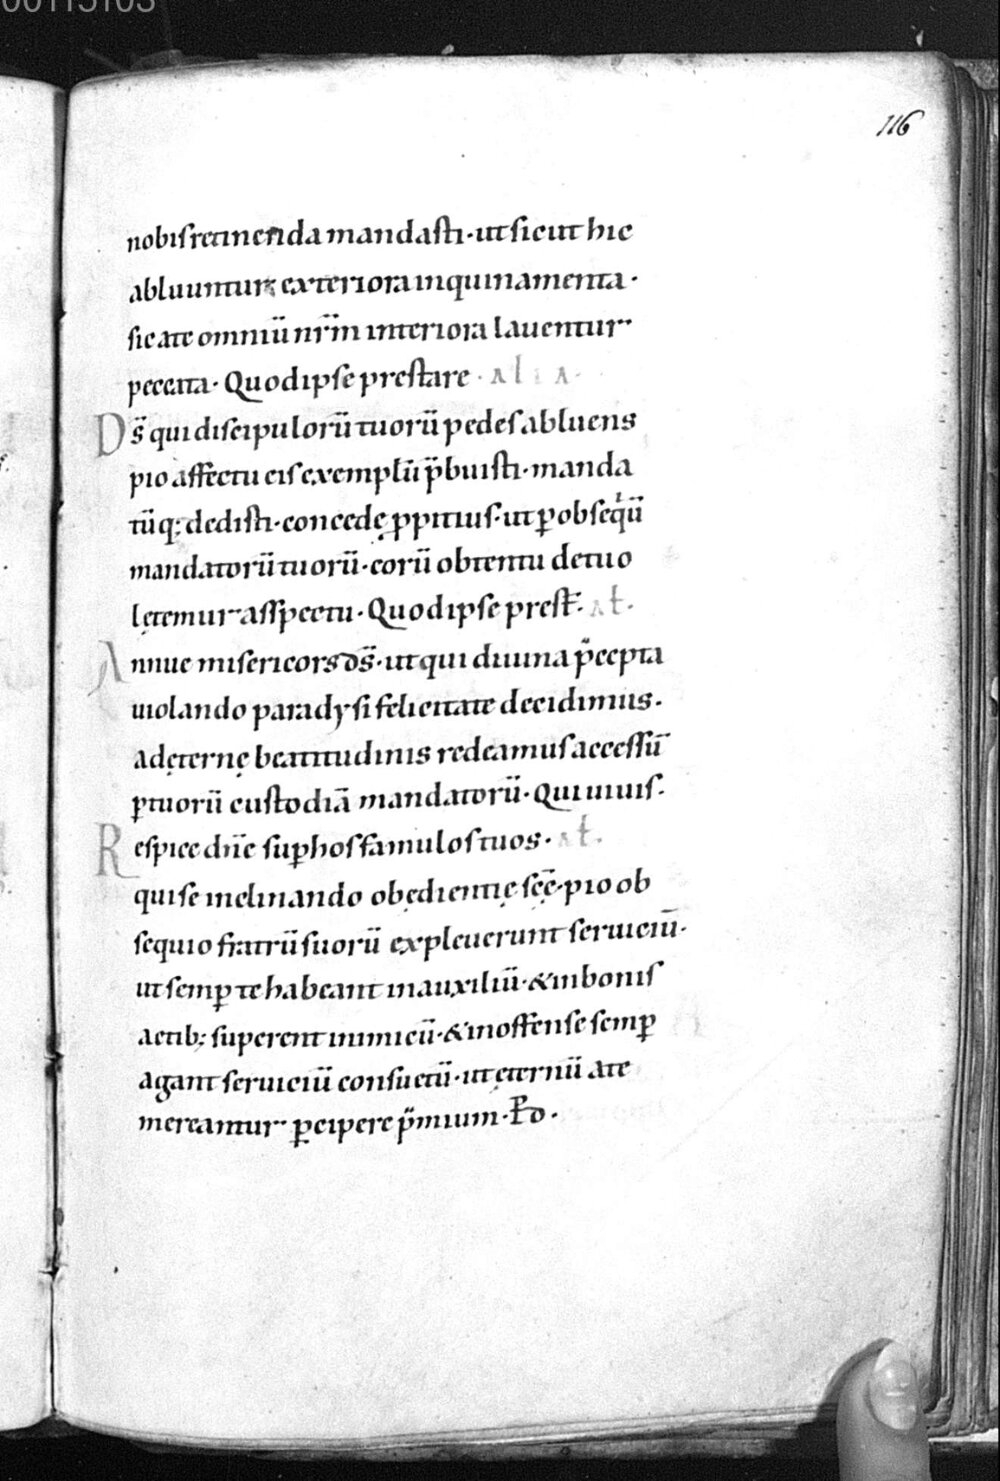 00115103
116
nobis retinenda mandasti · ut sicut hic
abluuntur exteriora inquinamenta ·
sic a te omniū nr̄m interiora lauentur
peccata · Quod ipse prestare · ALIA ·
Ds̄ qui discipulorū tuorū pedes abluens
pio affectu eis exemplū p̄buisti · manda
tūq; dedisti · concede ꝓpitius · ut ꝑ obseqͥū
mandatorū tuorū · eorū obtentu de tuo
lętemur asspectu · Quod ipse prest̄ · AL̄ ·
Annue misericors ds̄ · ut qui diuina p̄cepta
uiolando paradysi felicitate decidimus ·
ad ęternę beatitudinis redeamus accessū
ꝑ tuorū custodiā mandatorū · Qui uiuis ·
Respice dn̄e suꝑ hos famulos tuos · AL̄ ·
qui se inclinando obędientię scę̄ · pio ob
sequio fratrū suorū expleuerunt seruiciū ·
ut semꝑ te habeant in auxiliū · & in bonis
actib; superent inimicū · & inoffense semꝑ
agant seruiciū consuetū · ut ęternū a te
mereantur ꝑcipere p̄mium · P̄d ·